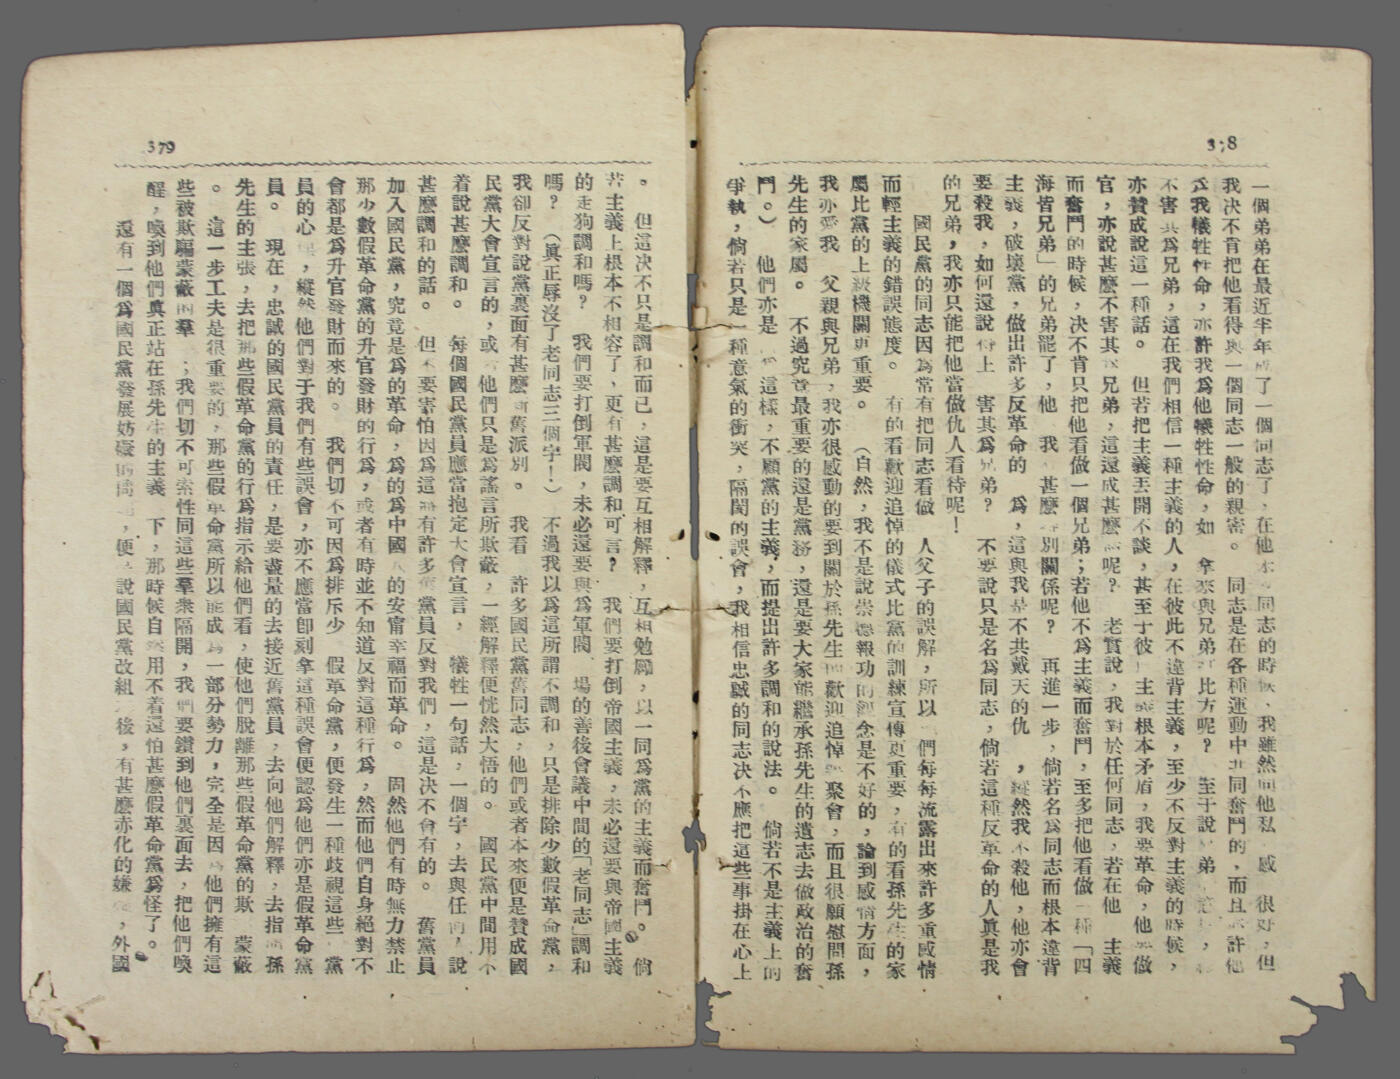 378
一個弟弟在最近半年成了一個同志了，在他本　同志的時候，我雖然同他私　感　很好，但
我决不肯把他看得與一個同志一般的親密。　同志是在各種運動中共同奮鬥的，而且　許他
爲我犧牲性命，亦許我爲他犧牲性命，如　拿來與兄弟　比方呢？　至于說　弟
不害其爲兄弟，這在我們相信一種主義的人，在彼此不違背主義，至少不反對主義的時候，
亦贊成說這一種話。　但若把主義丟開不談，甚至于彼　主義根本矛盾，我要革命，他　做
官，亦說甚麽不害其　兄弟，這還成甚麽　呢？　老實說，我對於任何同志，若在他　主義
而奮鬥的時候，决不肯只把他看做一個兄弟；若他不爲主義而奮鬥，至多把他看做一種「四
海皆兄弟」的兄弟罷了，他　我　甚麽　別關係呢？　再進一步，倘若名爲同志而根本違背
主義，破壞黨，做出許多反革命的　爲，這與我是不共戴天的仇　，縱然我不殺他，他亦會
要殺我，如何還說得上　害其爲兄弟？　不要說只是名爲同志，倘若這種反革命的人眞是我
的兄弟，我亦只能把他當做仇人看待呢！
國民黨的同志因爲常有把同志看做　人父子的誤解，所以　們每每流露出來許多重感情
而輕主義的錯誤態度。　有的看歡迎追悼的儀式比黨的訓練宣傳更重要，有的看孫先生的家
屬比黨的上級機關更重要。　（自然，我不是說崇德報功的觀念是不好的，論到感情方面，
我亦愛我　父親與兄弟，我亦很感動的要到關於孫先生的歡迎追悼　聚會，而且很願慰問孫
先生的家屬。　不過究竟最重要的還是黨務，還是要大家能繼承孫先生的遺志去做政治的奮
鬥。）　他們亦是　這樣，不顧黨的主義，而提出許多調和的說法。　倘若不是主義上的
爭執，倘若只是一種意氣的衝突，隔閡的誤會，我相信忠誠的同志决不應把這些事掛在心上
379
。　但這决不只是調和而已，這是要互相解釋，互相勉勵，以一同爲黨的主義而奮鬥。倘
若主義上根本不相容了，更有甚麽調和可言？　我們要打倒帝國主義，未必還要與帝國主義
的走狗調和嗎？　我們要打倒軍閥，未必還要與爲軍閥　場的善後會議中間的「老同志」調和
嗎？　（眞正辱沒了老同志三個字！）　不過我以爲這所謂不調和，只是排除少數假革命黨，
我卻反對說黨裏面有甚麽新舊派別。　我看　許多國民黨舊同志，他們或者本來便是贊成國
民黨大會宣言的，或　他們只是爲謠言所欺蔽，一經解釋便恍然大悟的。　國民黨中間用不
着說甚麽調和。　每個國民黨員應當抱定大會宣言，　犧牲一句話，一個字，去與任何人說
甚麽調和的話。　但不要害怕因爲這　有許多舊黨員反對我們，這是决不會有的。　舊黨員
加入國民黨，究竟是爲的革命，爲的爲中國人的安甯幸福而革命。　固然他們有時無力禁止
那少數假革命黨的升官發財的行爲，或者有時並不知道反對這種行爲，然而他們自身絕對不
會都是爲升官發財而來的。　我們切不可因爲排斥少　假革命黨，便發生一種歧視這些　黨
員的心理，縱然他們對于我們有些誤會，亦不應當卽刻拿這種誤會便認爲他們亦是假革命黨
員。　現在，忠誠的國民黨員的責任，是要盡量的去接近舊黨員，去向他們解釋，去指　孫
先生的主張，去把那些假革命黨的行爲指示給他們看，使他們脫離那些假革命黨的欺　蒙蔽
。　這一步工夫是很重要的，那些假革命黨所以能成爲一部分勢力，完全是因爲他們擁有這
些被欺騙蒙蔽的羣　；我們切不可索性同這些羣衆隔開，我們要鑽到他們裏面去，把他們喚
醒，喚到他們眞正站在孫先生的主義　下，那時候自然用不着還怕甚麽假革命黨爲怪了。
還有一個爲國民黨發展妨礙的　，便　說國民黨改組　後，有甚麽赤化的嫌　，外國